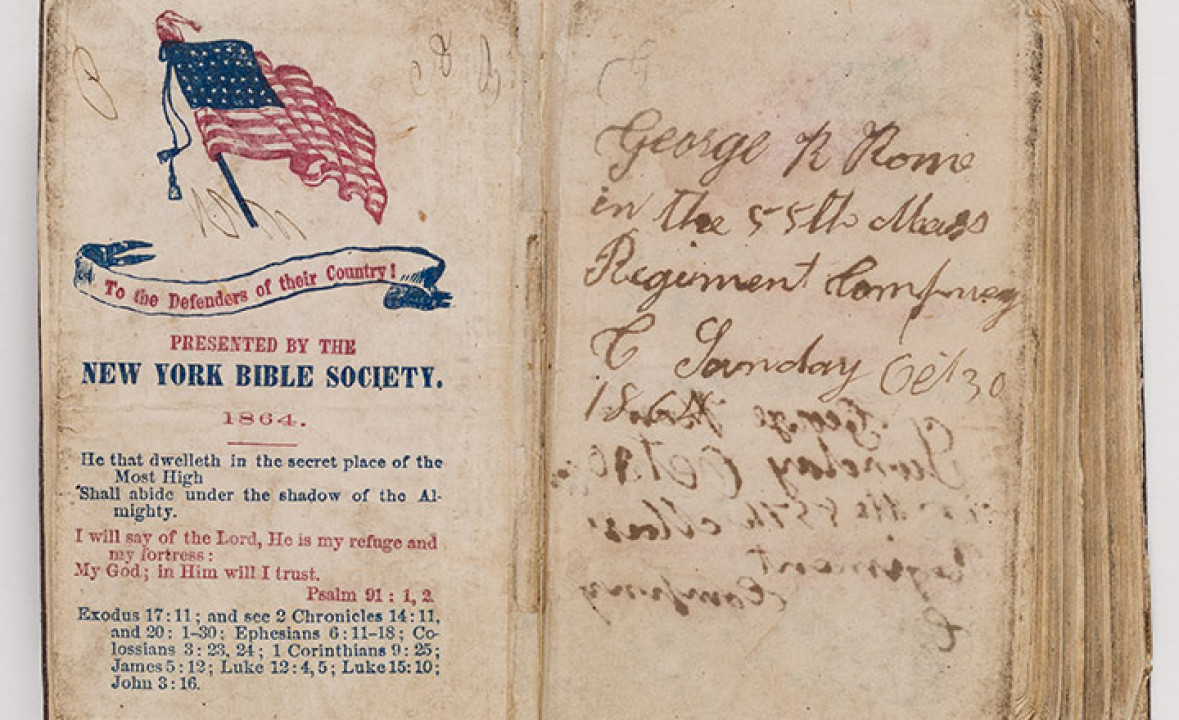 To the Defenders of their Country!
PRESENTED BY THE
NEW YORK BIBLE SOCIETY.
1864.
He that dwelleth in the secret place of the
Most High
Shall abide under the shadow of the Al-
mighty.
I will say of the Lord, He is my refuge and
my fortress:
My God; in Him will I trust.
Psalm 91: 1, 2.
Exodus 17:11; and see 2 Chronicles 14:11,
and 20: 1-30; Ephesians 6:11-18; Co-
lossians 3: 23, 24; 1 Corinthians 9: 25;
James 5: 12; Luke 12: 4, 5; Luke 15: 10;
John 3: 16.
George R Rome
in the 55th Mass
Regiment Company
C Sunday Oct 30
1864